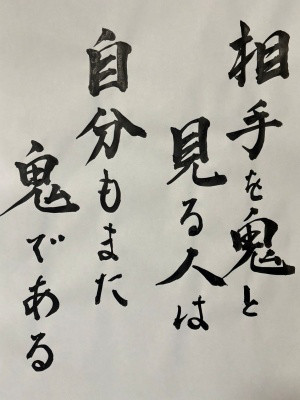 相手を鬼と
見る人は
自分もまた
鬼である